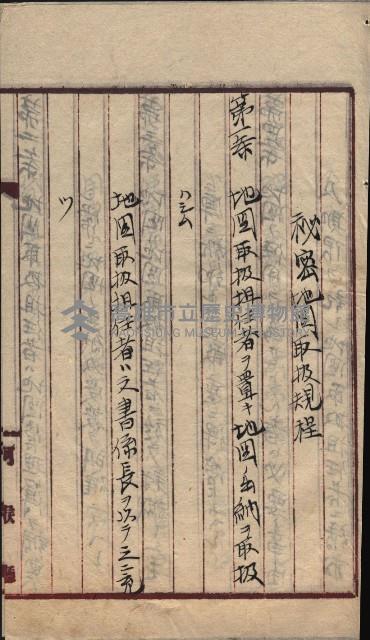 秘密地図取扱規程
第一条 地図取扱担任者ヲ置キ地図出納ヲ取扱
ハシム
地図取扱担任者ハ文書係長ヲ以テ之ニ充
ツ
高雄市立歷史博物館
KAOHSIUNG MUSEUM OF HISTORY